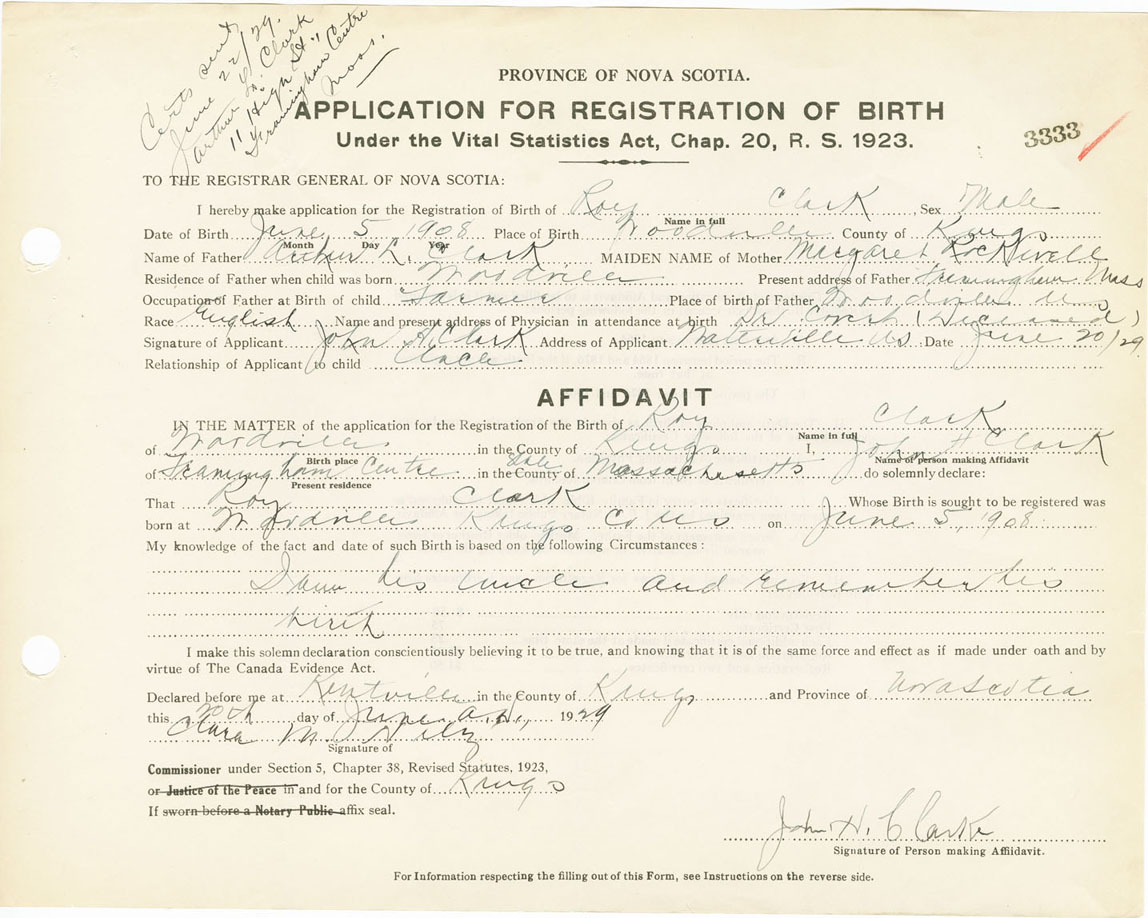 Certs sent
June 22/29.
Arthur L. Clark
11 High St.,
Framingham Centre
Mass.
PROVINCE OF NOVA SCOTIA.
APPLICATION FOR REGISTRATION OF BIRTH
Under the Vital Statistics Act, Chap. 20, R. S. 1923.
3333
TO THE REGISTRAR GENERAL OF NOVA SCOTIA:
I hereby make application for the Registration of Birth of Roy Clark Sex Male
Name in full
Date of Birth June 5 1908 Place of Birth Woodville County of Kings
Month Day Year
Name of Father Arthur L. Clark MAIDEN NAME of Mother Margaret Rockwell
Residence of Father when child was born Woodville Present address of Father Framingham Mass
Occupation of Father at Birth of child Farmer Place of birth of Father Woodville N S
Race English Name and present address of Physician in attendance at birth Dr (Deceased)
Signature of Applicant John H. Clark Address of Applicant Waterville NS Date June 20/29
Relationship of Applicant to child Uncle
AFFIDAVIT
IN THE MATTER of the application for the Registration of the Birth of Roy Clark
Name in full
of Woodville in the County of Kings I, John H Clark
Birth place Name of person making Affidavit
of Framingham Centre in the County of State Massachesetts do solemnly declare:
Present residence
That Roy Clark Whose Birth is sought to be registered was
born at Woodville Kings Co NS on June 5, 1908
My knowledge of the fact and date of such Birth is based on the following Circumstances:
I am his uncle and remember his
birth
I make this solemn declaration conscientiously believing it to be true, and knowing that it is of the same force and effect as if made under oath and by
virtue of The Canada Evidence Act.
Declared before me at Kentville in the County of Kings and Province of Nova Scotia
this 20th day of June A.D., 1929
Clara M.
Signature of
Commissioner under Section 5, Chapter 38, Revised Statutes, 1923,
or Justice of the Peace in and for the County of Kings
If sworn before a Notary Public affix seal.
John H. Clarke
Signature of Person making Affidavit.
For Information respecting the filling out of this Form, see Instructions on the reverse side.